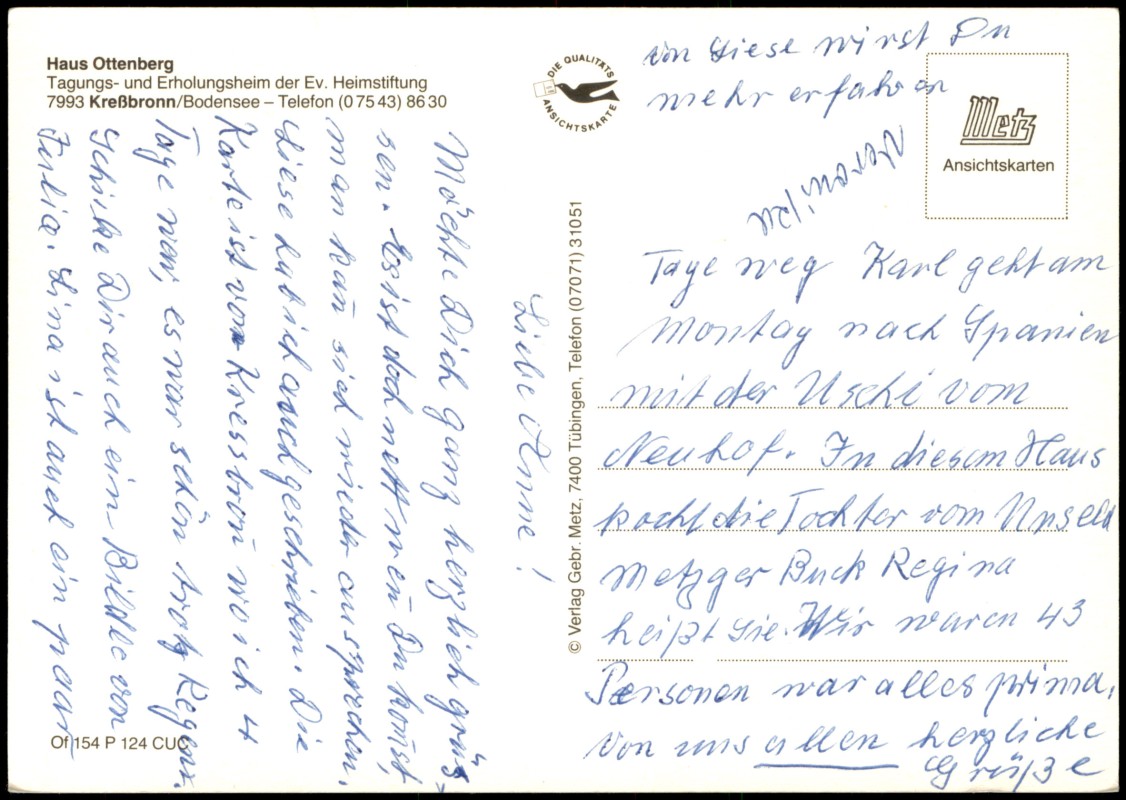 Haus Ottenberg
Tagungs- und Erholungsheim der Ev. Heimstiftung
7993 Kreßbronn/Bodensee – Telefon (0 75 43) 86 30
DIE QUALITÄTS
ANSICHTSKARTE
Metz
Ansichtskarten
© Verlag Gebr. Metz, 7400 Tübingen, Telefon (07071) 31051
Of 154 P 124 CUC
Liebe Anne!
Möchte Dich ganz herzlich grüs-
sen. Es ist doch nett wen Du komst,
man kan sich wieder aussprechen.
Liese hab ich auch geschrieben. Die
Karte ist von Kressbron wo ich 4
Tage war, es war schön trotz Regen.
Schicke Dir auch ein Bildle von
Julia. Lina ist auch ein paar
Tage weg Karl geht am
Montag nach Spanien
mit der Uschi vom
Neuhof. In diesem Haus
kocht die Tochter vom Unseld
Metzger Buck Regina
heißt Sie. Wir waren 43
Personen war alles prima,
von uns allen herzliche
Grüße
von Liese wirst Du
mehr erfahren